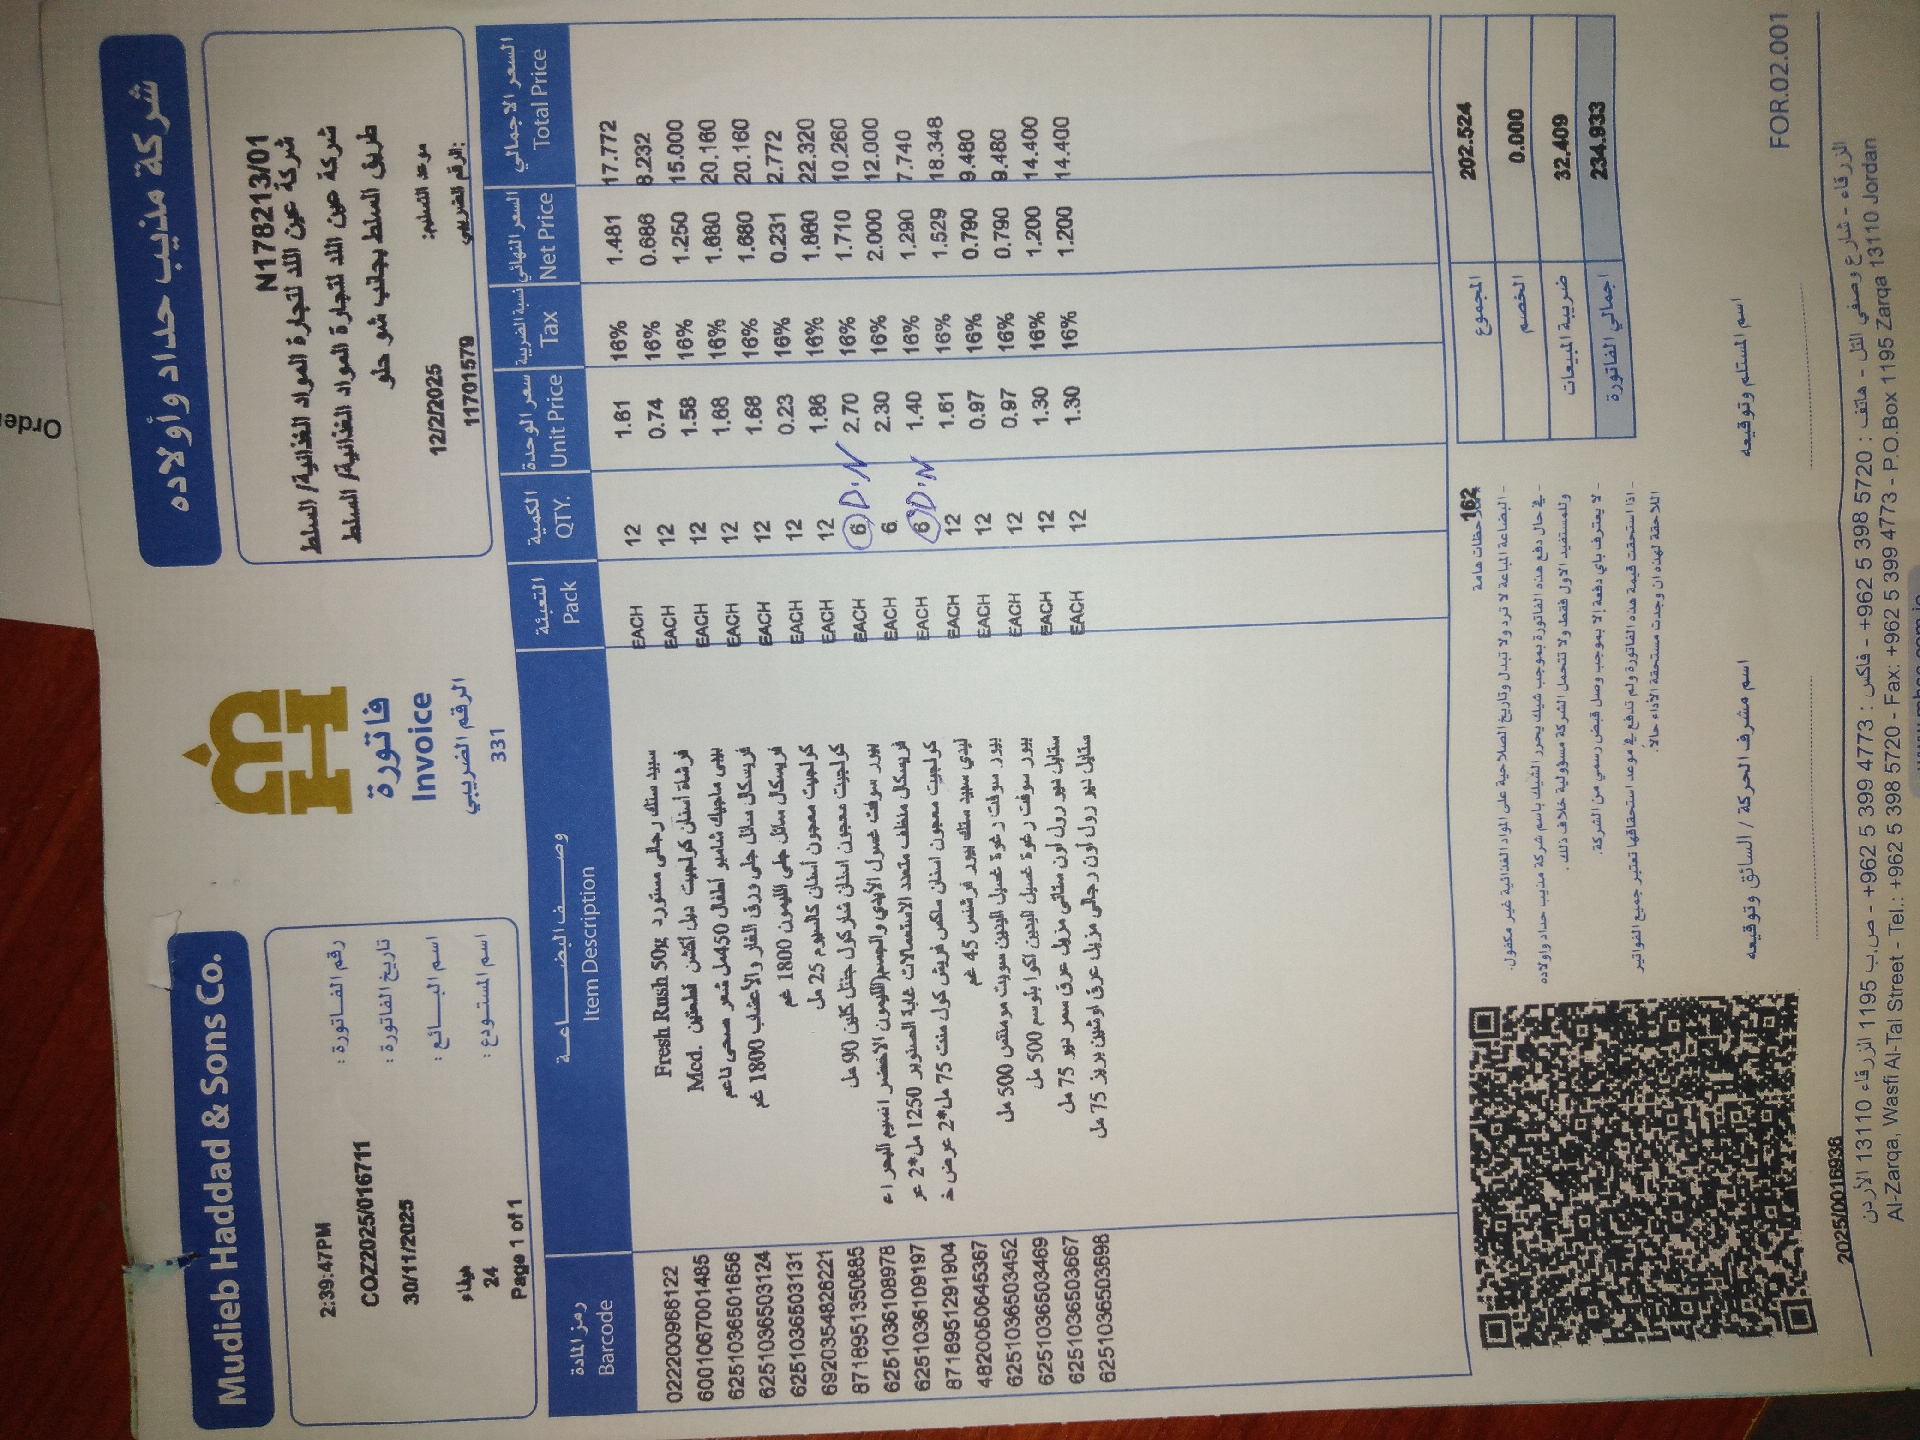 Order
Mudieb Haddad & Sons Co.
شركة مذيب حداد وأولاده
فاتورة
Invoice
الرقم الضريبي
331
2:39:47PM
رقم الفاتورة : COZ2025/016711
تاريخ الفاتورة : 30/11/2025
اسم البائع : هيفاء
اسم المستودع : 24
Page 1 of 1
N178213/01
شركة عين اللد لتجارة المواد الغذائية/ السلط
شركة عين اللد لتجارة المواد الغذائية/ السلط
طريق السلط بجانب شو حلو
موعد التسليم: 12/2/2025
الرقم الضريبي: 11701579
رمز المادة وصف البضاعة التعبئة الكمية سعر الوحدة نسبة الضريبة السعر النهائي السعر الاجمالي
Barcode Item Description Pack QTY. Unit Price Tax Net Price Total Price
022200966122 سبيد ستك رجالي مستورد Fresh Rush 50g EACH 12 1.61 16% 1.481 17.772
6001067001485 فرشاة اسنان كولجيت دبل اكشن قطعتين Med. EACH 12 0.74 16% 0.686 8.232
6251036501656 بيبي ماجيك شامبو أطفال 450مل شعر صحي ناعم EACH 12 1.58 16% 1.250 15.000
6251036503124 فريسكال سائل جلي ورق الغار والأعشاب 1800 غم EACH 12 1.68 16% 1.680 20.160
6251036503131 فريسكال سائل جلي الليمون 1800 غم EACH 12 1.68 16% 1.680 20.160
6920354826221 كولجيت معجون أسنان كالسيوم 25 مل EACH 12 0.23 16% 0.231 2.772
8718951350885 كولجيت معجون اسنان شاركول جنتل كلين 90 مل EACH 12 1.86 16% 1.860 22.320
6251036108978 بيور سوفت غسول الأيدي والجسم(الليمون الاخضر/نسيم البحر)ء EACH 6 D.N 2.70 16% 1.710 10.260
6251036109197 فريسكال منظف متعدد الاستعمالات غابة الصنوبر 1250 مل*2 عر EACH 6 2.30 16% 2.000 12.000
8718951291904 كولجيت معجون اسنان ماكس فريش كول منت 75 مل*2 عرض خ EACH 6 D.N 1.40 16% 1.290 7.740
4820050645367 ليدي سبيد ستك بيور فرشنس 45 غم EACH 12 1.61 16% 1.529 18.348
6251036503452 بيور سوفت رغوة غسيل اليدين سويت مومنتس 500 مل EACH 12 0.97 16% 0.790 9.480
6251036503469 بيور سوفت رغوة غسيل اليدين اكوا بلوسم 500 مل EACH 12 0.97 16% 0.790 9.480
6251036503667 ستايل نيو رول اون ستاتي مزيل عرق سمر نيو 75 مل EACH 12 1.30 16% 1.200 14.400
6251036503698 ستايل نيو رول اون رجالي مزيل عرق اوشين بريز 75 مل EACH 12 1.30 16% 1.200 14.400
المجموع 202.524
الخصم 0.000
ضريبة المبيعات 32.409
اجمالي الفاتورة 234.933
162
ملاحظات هامة
- البضاعة المباعة لا ترد ولا تبدل وتاريخ الصلاحية على المواد الغذائية غير مكفول.
- في حال دفع هذه الفاتورة بموجب شيك يحرر الشيك باسم شركة مذيب حداد واولاده
وللمستفيد الاول فقط ولا تتحمل الشركة مسؤولية خلاف ذلك.
- لا يعترف باي دفعة إلا بموجب وصل قبض رسمي من الشركة.
- اذا استحقت قيمة هذه الفاتورة ولم تدفع في موعد استحقاقها تعتبر جميع الفواتير
اللاحقة لهذه ان وجدت مستحقة الأداء حالاً.
اسم مشرف الحركة / السائق وتوقيعه
اسم المستلم وتوقيعه
FOR.02.001
2025/0016936
الزرقاء - شارع وصفي التل - هاتف : 5720 398 5 962+ - فاكس : 4773 399 5 962+ - ص.ب 1195 الزرقاء 13110 الأردن
Al-Zarqa, Wasfi Al-Tal Street - Tel.: +962 5 398 5720 - Fax: +962 5 399 4773 - P.O.Box 1195 Zarqa 13110 Jordan